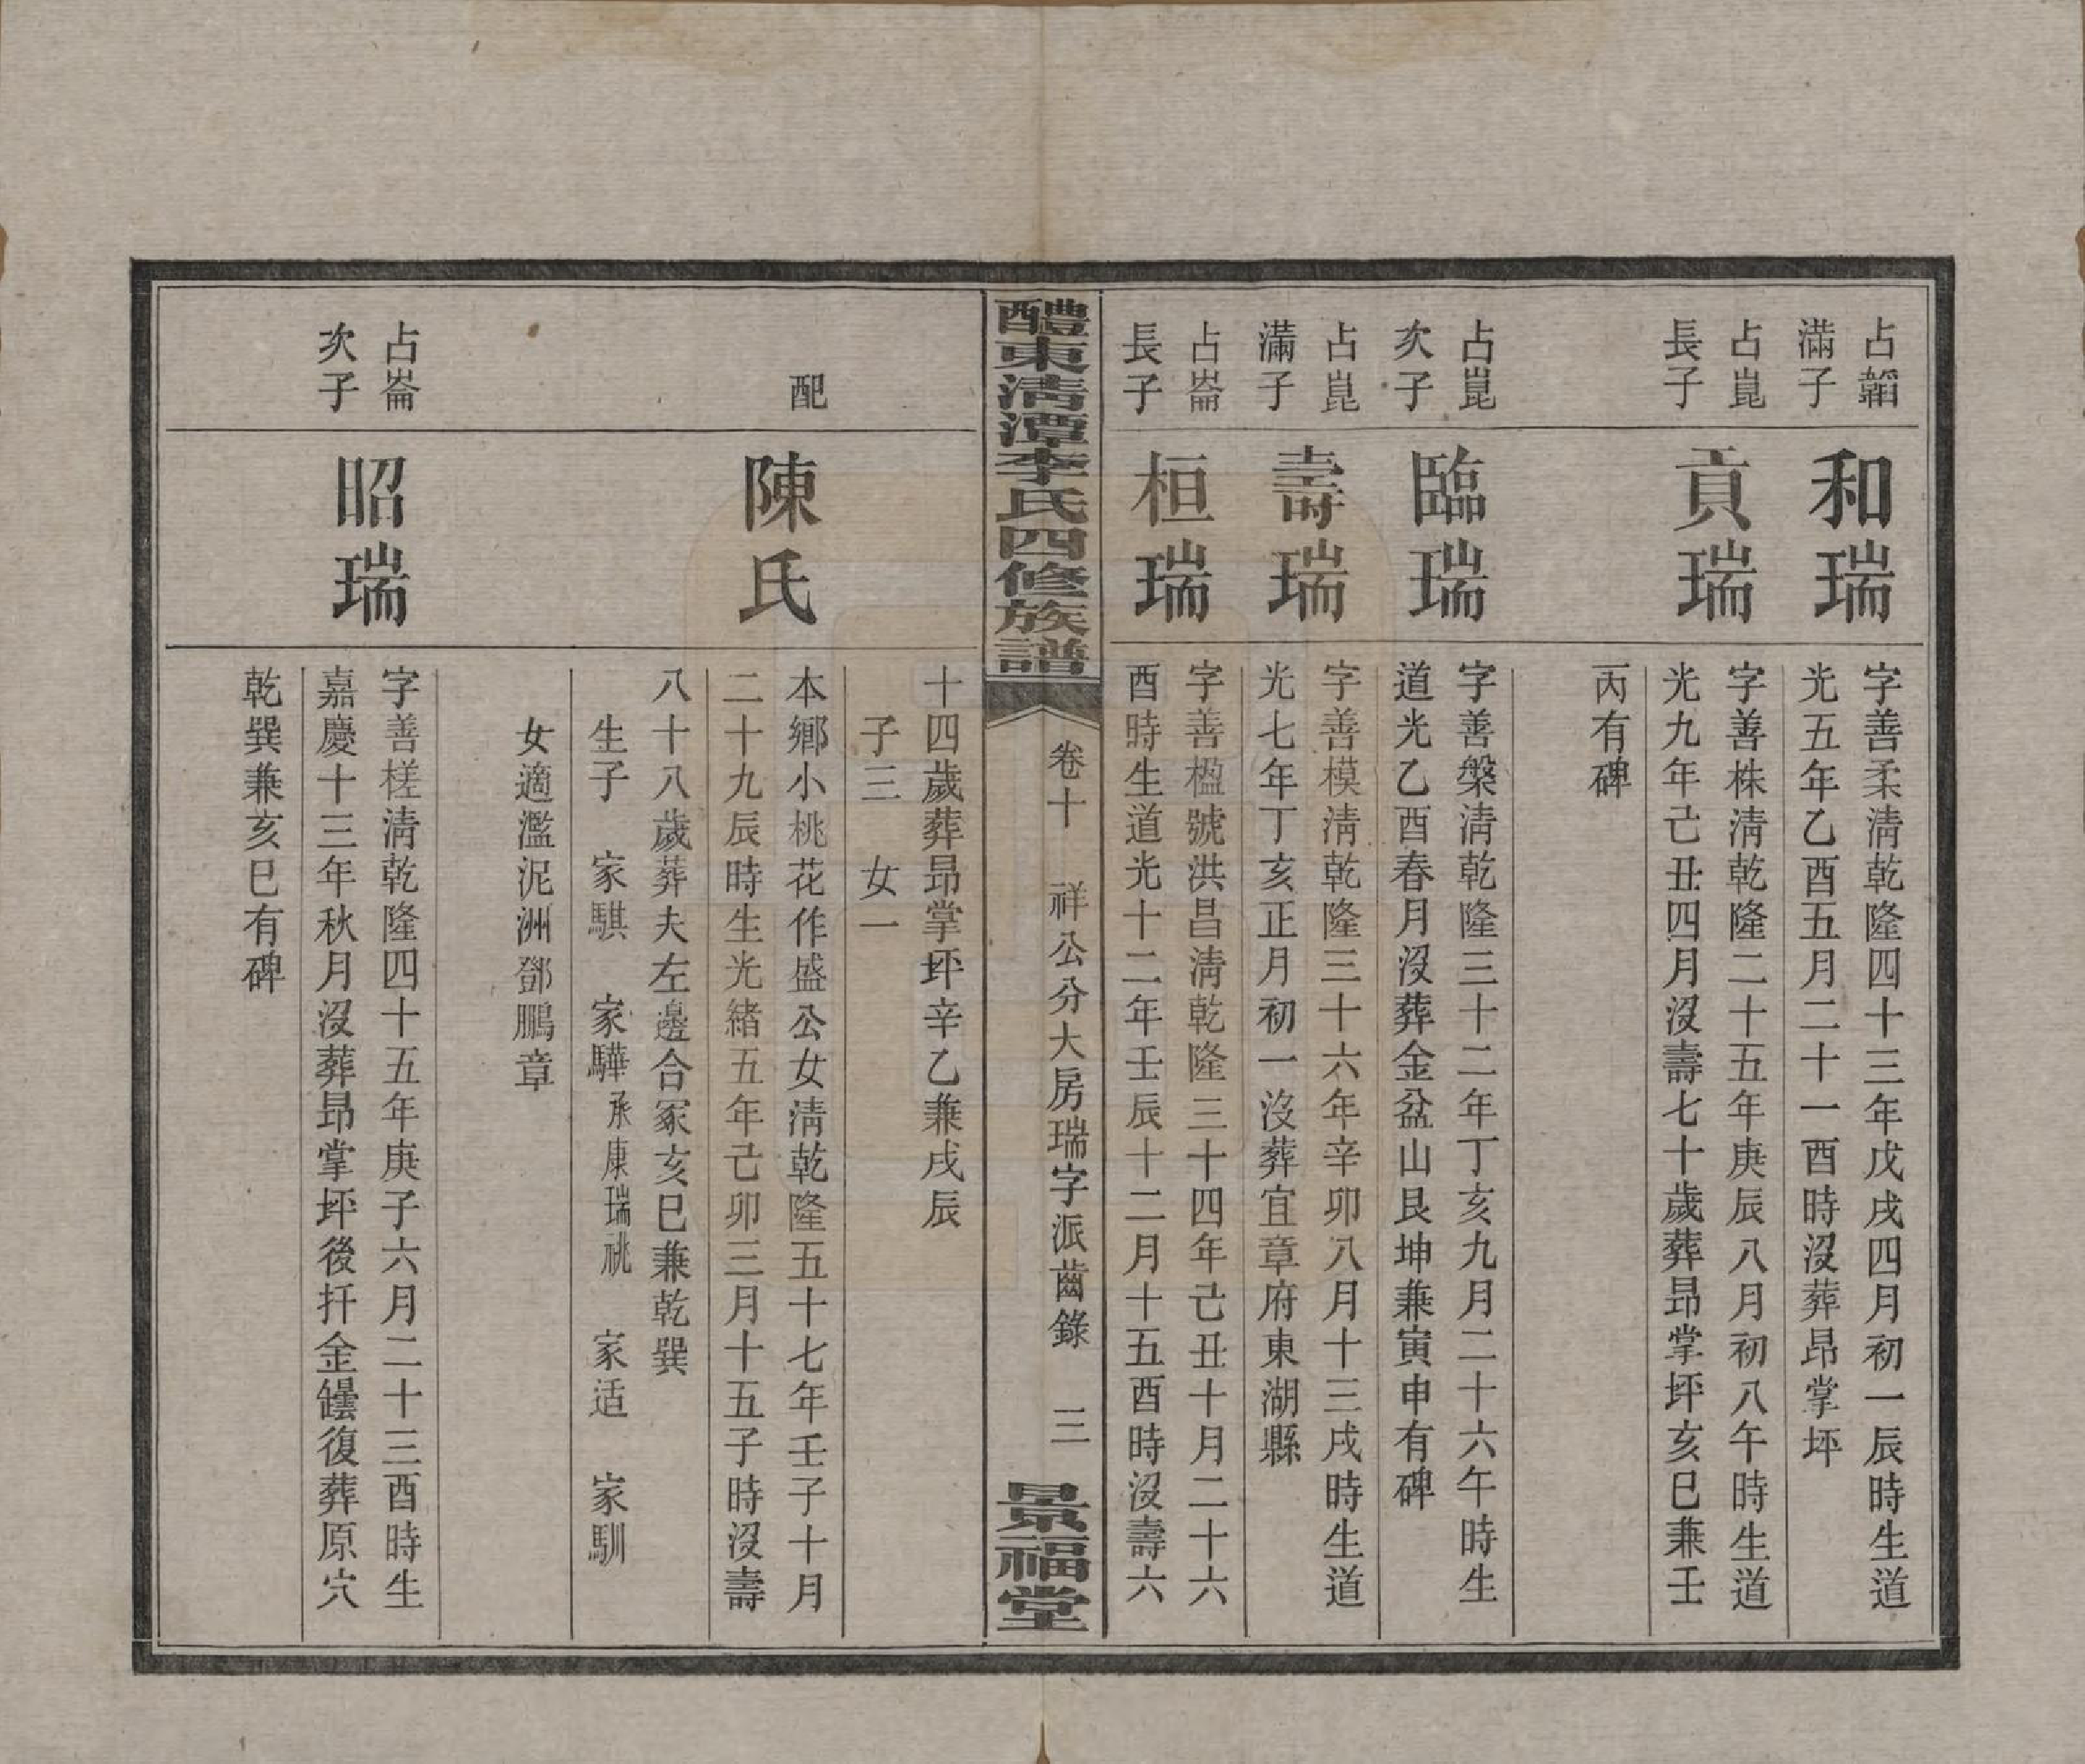 占韜
滿子
和瑞
字善柔淸乾隆四十三年戊戌四月初一辰時生道
光五年乙酉五月二十一酉時沒葬昂掌坪
占崑
長子
貢瑞
字善株淸乾隆二十五年庚辰八月初八午時生道
光九年己丑四月沒壽七十歲葬昂掌坪亥巳兼壬
丙有碑
占崑
次子
臨瑞
字善槃淸乾隆三十二年丁亥九月二十六午時生
道光乙酉春月沒葬金盆山艮坤兼寅申有碑
占崑
滿子
壽瑞
字善模淸乾隆三十六年辛卯八月十三戌時生道
光七年丁亥正月初一沒葬宜章府東湖縣
占崙
長子
桓瑞
字善楹號洪昌淸乾隆三十四年己丑十月二十六
酉時生道光十二年壬辰十二月十五酉時沒壽六
醴東淸潭李氏四修族譜
卷十 祥公分大房瑞字派齒錄 三
景福堂
十四歲葬昂掌坪辛乙兼戌辰
子三 女一
配
陳氏
本鄉小桃花作盛公女淸乾隆五十七年壬子十月
二十九辰時生光緒五年己卯三月十五子時沒壽
八十八歲葬夫左邊合冢亥巳兼乾巽
生子 家騏 家驊承康瑞祧 家适 家馴
女適濫泥洲鄧鵬章
占崙
次子
昭瑞
字善槎淸乾隆四十五年庚子六月二十三酉時生
嘉慶十三年秋月沒葬昂掌坪後扦金罍復葬原穴
乾巽兼亥巳有碑